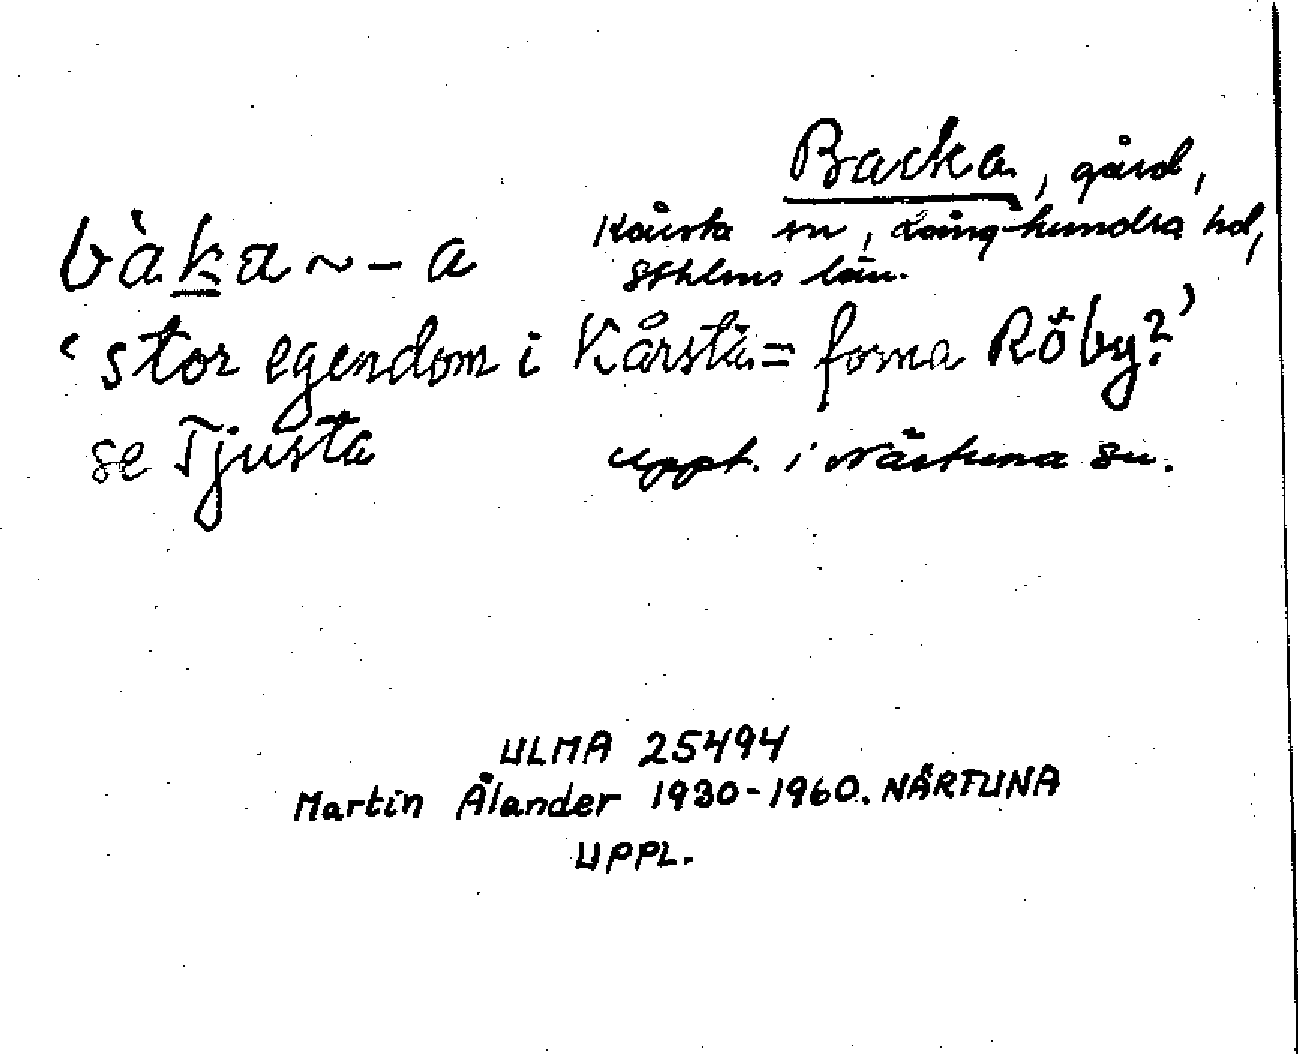 Backa, gård,
Kårsta sn, Långhundra hd,
Sthlms län.
bàka ~ – a
‘stor egendom i Kårsta = forna Röby?’
se Tjusta
uppt. i Närtuna sn.
ULMA 25494
Martin Ålander 1930-1960. NÄRTUNA
UPPL.